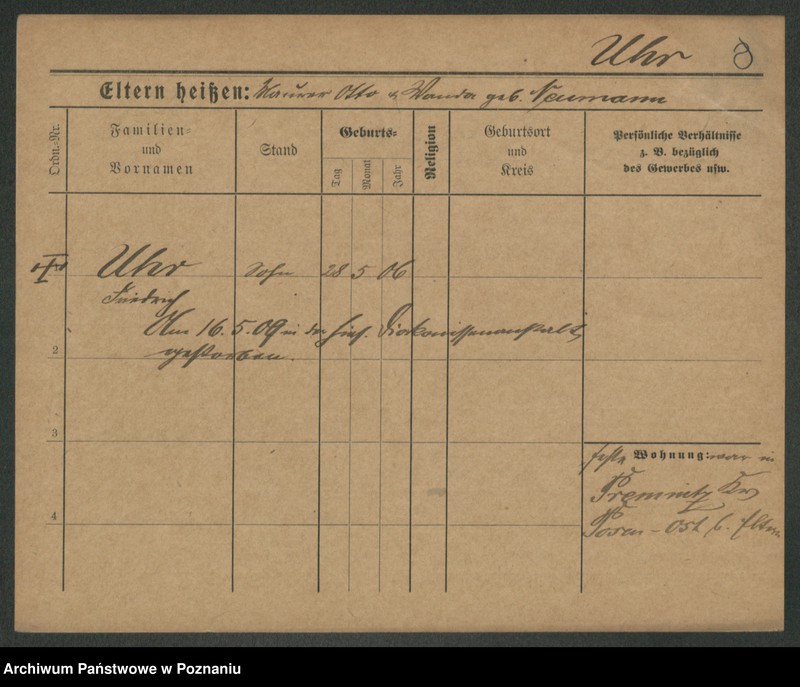 Uhr 8
Eltern heißen: Maurer Otto u. Wanda geb. Neumann
Ordn.-Nr.
Familien- und Vornamen
Stand
Geburts-
Tag
Monat
Jahr
Religion
Geburtsort und Kreis
Persönliche Verhältnisse z. B. bezüglich des Gewerbes usw.
Uhr Sohn 28 5 06
Friedrich
Am 16.5.09 in der hies. Diakonissenanstalt
2 gestorben.
3
feste Wohnung: war in
Premnitz Krs
4
Posen-Ost b. Eltern
Archiwum Państwowe w Poznaniu